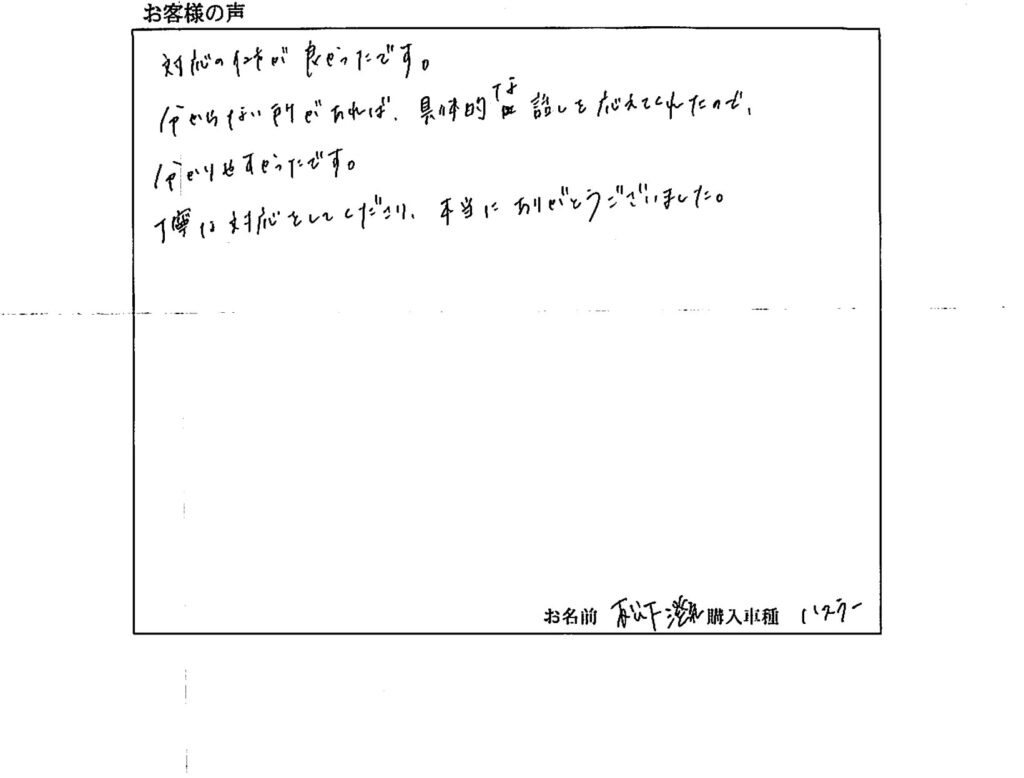 お客様の声
対応の仕方が良かったです。
分からない所があれば、具体的な話しを応えてくれたので、
分かりやすかったです。
丁寧な対応をしてくださり、本当にありがとうございました。
お名前 松下 購入車種 ハスラー